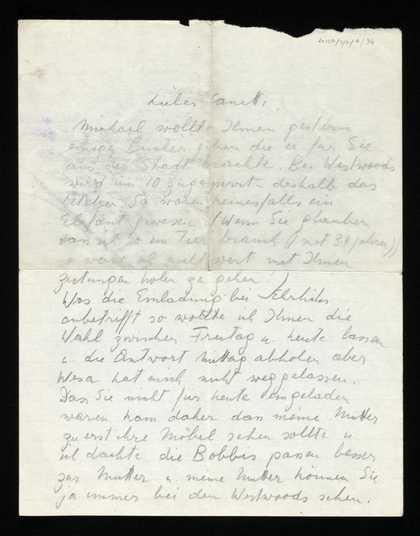 Lieber Canetti
Michael wollte Ihnen gestern
einige Bücher geben die er für Sie
aus der Stadt brachte. Bei Westwoods
wird um 10 zugesperrt deshalb das
Sie waren keinesfalls ein
Elefant gewesen (Wenn Sie glauben
dass ich so ein Tier brauch (mit 39 Jahren))
so wäre ich nicht wert mit Ihnen
Zeitungen holen zu gehen!)
Was die Einladung bei Ehrlichs
anbetrifft so wollte ich Ihnen die
Wahl zwischen Freitag u. heute lassen
u. die Antwort Mittag abholen aber
Wesa hat mich nicht weggelassen.
Dass Sie nicht für heute eingeladen
waren kam daher dass meine Mutter
zuerst ihre Möbel sehen sollte u
ich dachte die Bobbis passen besser
zur Mutter u. meine Mutter können Sie
ja immer bei den Westwoods sehen.